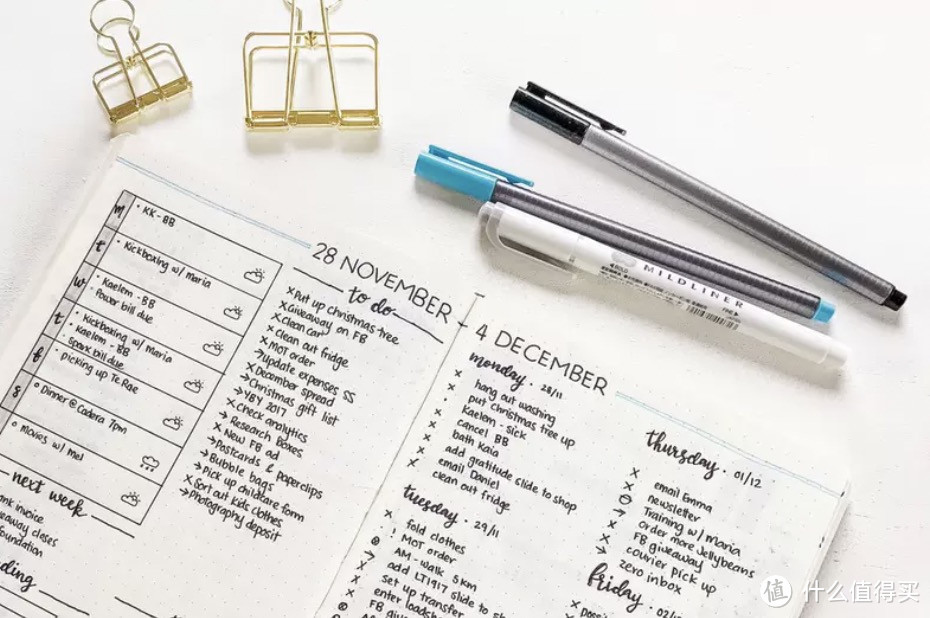 m
• KK - BB
t
• Kickboxing w/ Maria
w
• Kaelem - BB
• Power bill due
t
• Kickboxing w/ Maria
• Kaelem - BB
• Spark bill due
f
• picking up Te Rae
s
○ Dinner @ Cadera 7pm
○ movies w/ Mel
next week
invoice
closes
28 NOVEMBER
to do
× Put up christmas tree
× Giveaway on FB
× Clean car
× Clean out fridge
× MOT order
→ Update expenses SS
× December spread
→ Christmas gift list
→ YBY 2017
× Check analytics
× Research Boxes
× New FB ad
→ Postcards & paperclips
→ Bubble bags
→ Pick up childcare form
× Sort out kids clothes
→ Photography deposit
4 DECEMBER
monday • 28/11
hang out washing
put christmas tree up
Kaelem - sick
cancel BB
bath Kaia
add gratitude slide to shop
email Daniel
clean out fridge
tuesday • 29/11
fold clothes
! MOT order
AM - walk 5km
add LT1917 slide to
set up transfer
enter
thursday • 01/12
email Emma
newsletter
Training w/ maria
order more Jellybeans
FB giveaway
courier pick up
zero inbox
friday • 02/12
BOLD
MILDLINER
FINE
JAPAN
值 什么值得买